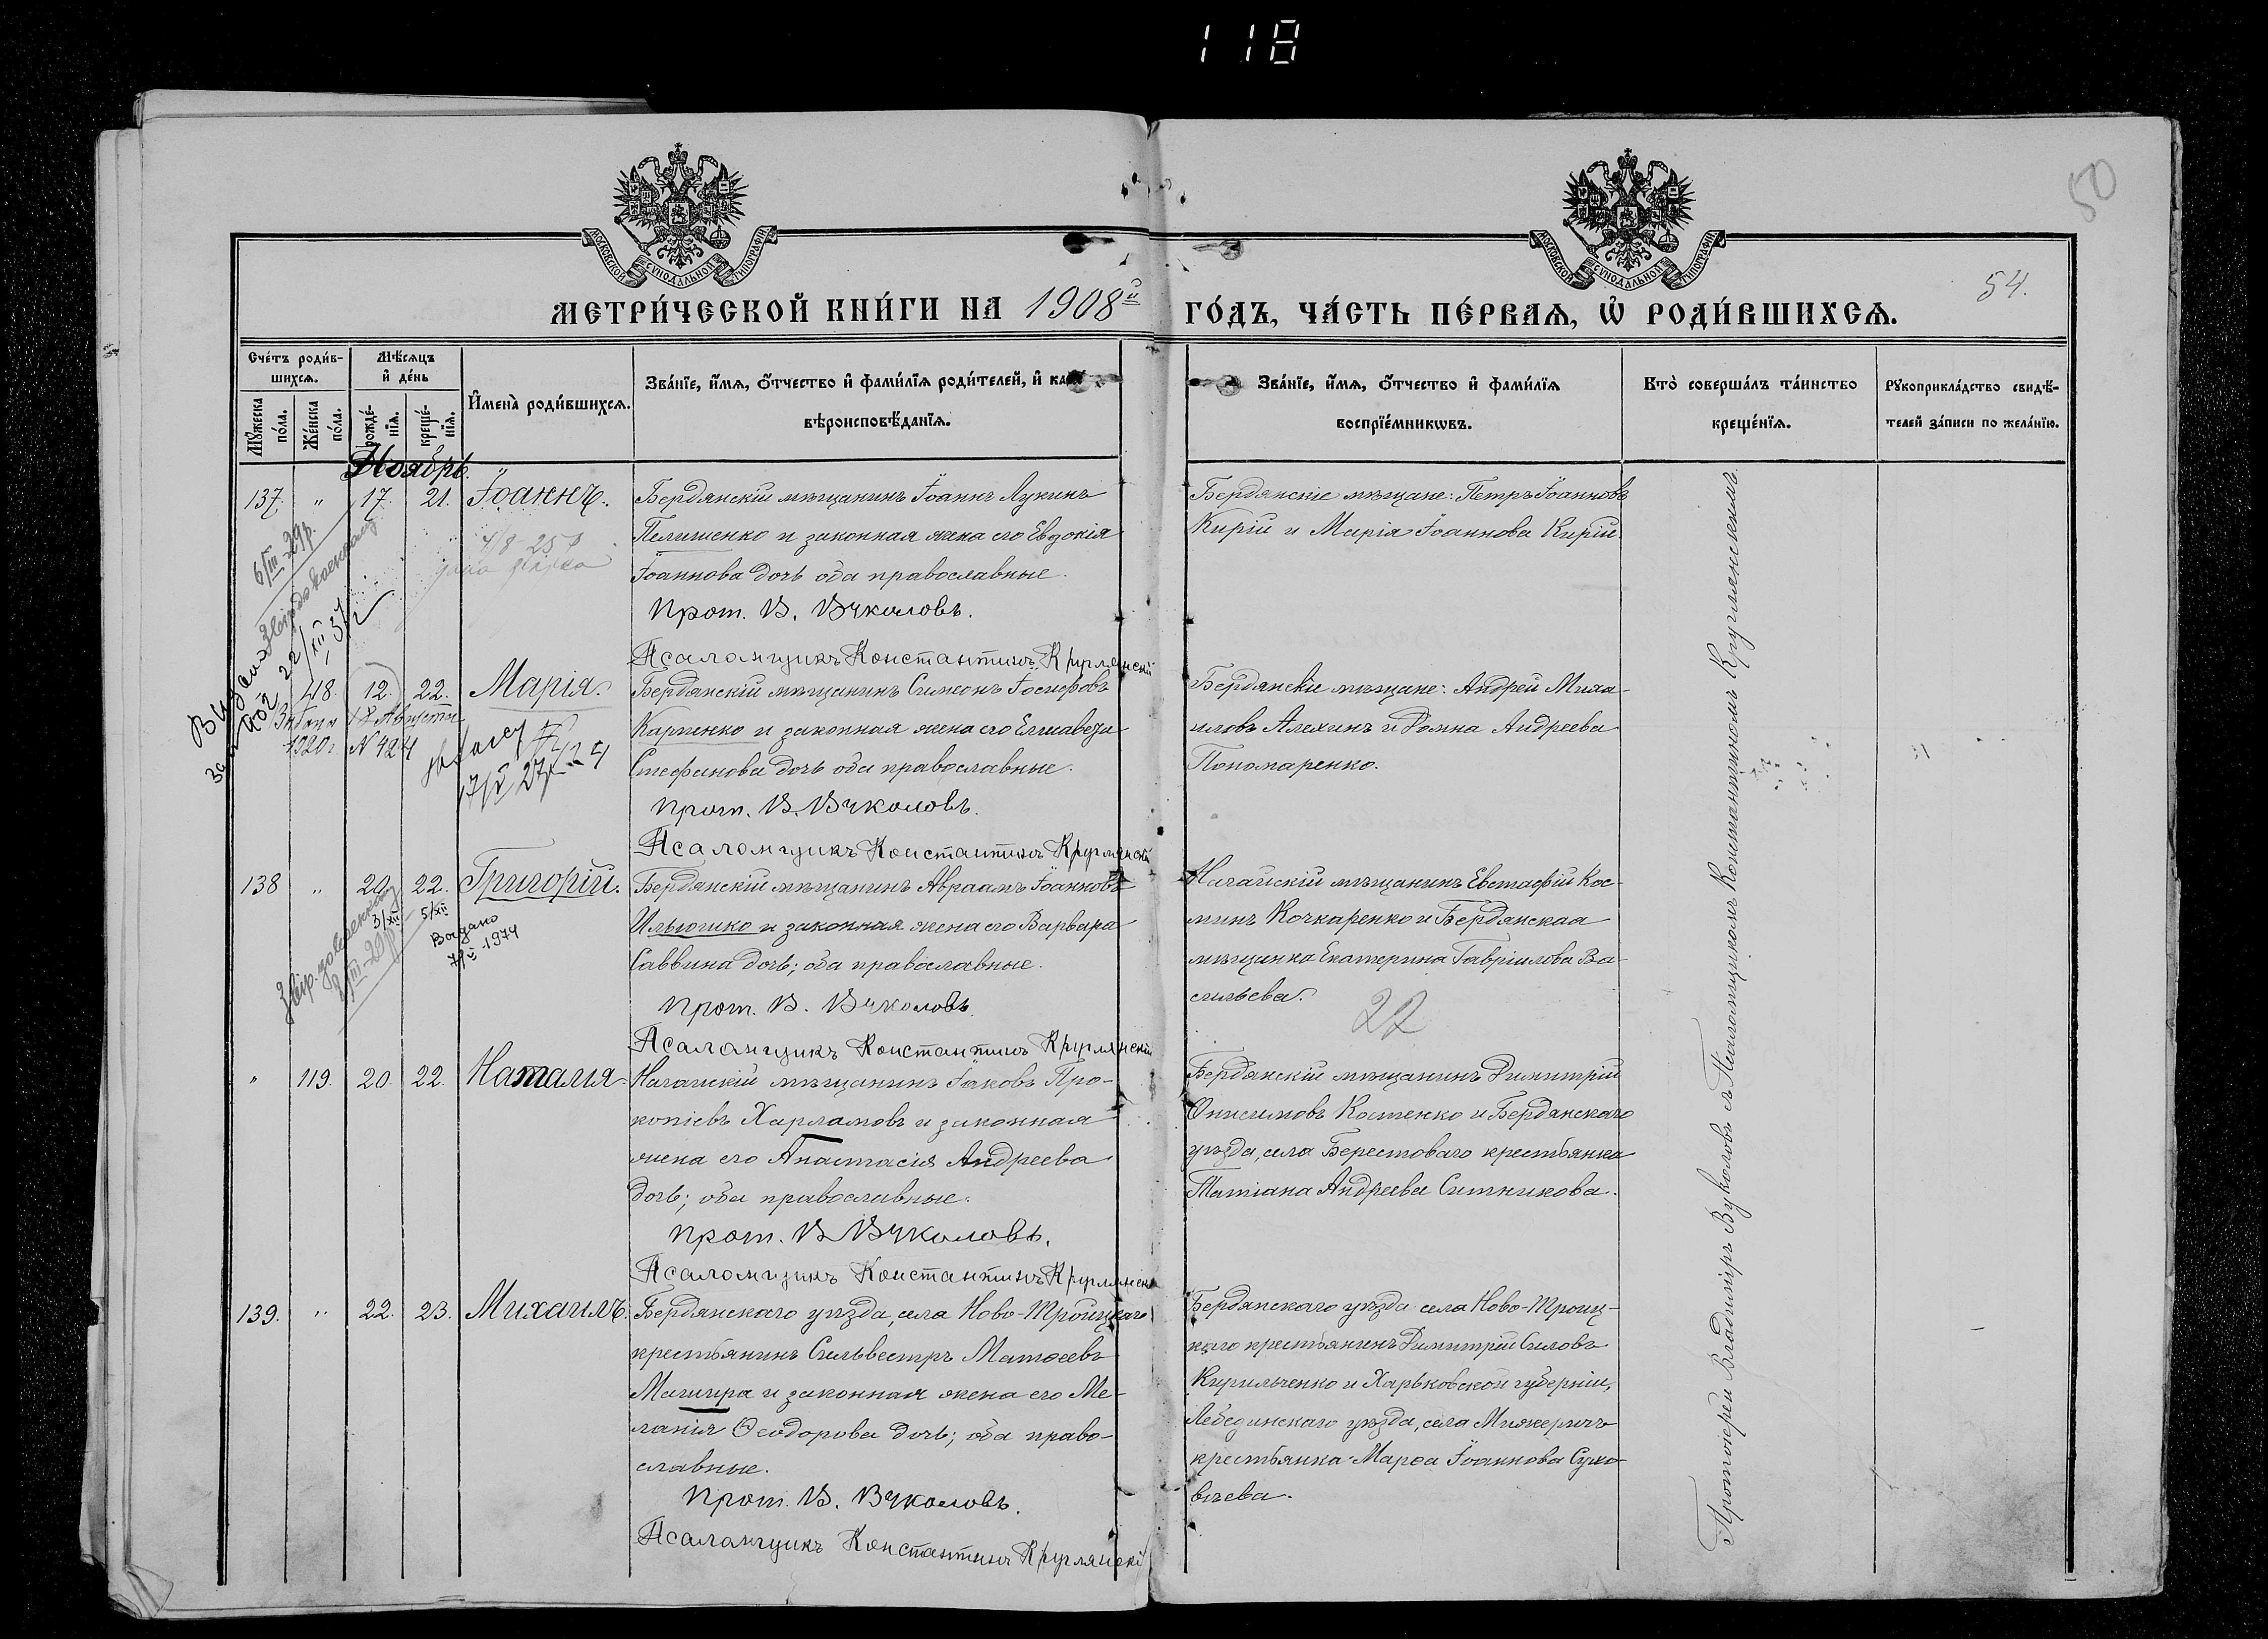 118
50
МОСКОВСКОЙ СѴНОДАЛЬНОЙ ТИПОГРАФІИ
МОСКОВСКОЙ СѴНОДАЛЬНОЙ ТИПОГРАФІИ
54.
МЕТРИ́ЧЕСКОЙ КНИ́ГИ НА 1908й ГО́ДЪ, ЧА́СТЬ ПЕ́РВАѦ, Ѡ҆ РОДИ́ВШИХСѦ.
Сче́тъ роди́в-
шихсѧ.
Мѣ́сѧцъ
и҆ де́нь
Мꙋ́жеска по́ла.
Же́нска по́ла.
рожде́-нїѧ.
креще́-нїѧ.
И҆мена̀ роди́вшихсѧ.
Зва́нїе, и҆́мѧ, ѻ҆́тчество и҆ фами́лїѧ роди́телей, и҆
вѣроисповѣ́данїѧ.
Зва́нїе, и҆́мѧ, ѻ҆́тчество и҆ фами́лїѧ
воспрїе́мникѡвъ.
Кто̀ соверша́лъ та́инство
креще́нїѧ.
Рꙋкоприкла́дство свидѣ́-
телей за́писи по жела́нїю.
Ноябрь.
137. " 17. 21. Іоаннъ.
Бердянскій мѣщанинъ Іоаннъ Лукинъ
Пелишенко и законная жена его Евдокія
Іоаннова дочь оба православные.
Прот. В. Вуколовъ.
Псаломщикъ Константинъ Круглянскій
Бердянскіе мѣщане: Петръ Іоанновъ
Кирій и Марія Іоаннова Кирій
6/III-29р.
22/XII 37
48. 12. 22. Марія.
1920 г. N 424
Бердянскій мѣщанинъ Симеонъ Іосифовъ
Карпенко и законная жена его Елисавета
Стефанова дочь оба православные.
Прот. В. Вуколовъ.
Псаломщикъ Константинъ Круглянскій
Бердянскіе мѣщане: Андрей Миха-
иловъ Алехинъ и Домна Андреева
Пономаренко.
138 " 20 22. Григорій.
3/XII 5/XII
1974
Бердянскій мѣщанинъ Авраамъ Іоанновъ
Ильюшко и законная жена его Варвара
Саввина дочь; оба православные.
Прот. В. Вуколовъ.
Псаломщикъ Константинъ Круглянскій
Ногайскій мѣщанинъ Евстафій Кос-
минъ Кочкаренко и Бердянская
мѣщанка Екатерина Гавріилова Ва-
сильева.
22
" 119. 20. 22. Наталія.
Ногайскій мѣщанинъ Іаковъ Про-
копіевъ Харламовъ и законная
жена его Анастасія Андреева
дочь; оба православные.
Прот. В Вуколовъ.
Псаломщикъ Константинъ Круглянскій
Бердянскій мѣщанинъ Димитрій
Онисимовъ Костенко и Бердянскаго
уѣзда, села Берестоваго крестьянка
Татіана Андреева Ситникова.
139. " 22. 23. Михаилъ.
Бердянскаго уѣзда, села Ново-Троицкаго
крестьянинъ Сильвестръ Матѳеевъ
Мачича и законная жена его Ме-
ланія Ѳеодорова дочь; оба право-
славные.
Прот. В. Вуколовъ.
Псаломщикъ Константинъ Круглянскій
Бердянскаго уѣзда села Ново-Троиц-
каго крестьянинъ Димитрій Силовъ
Кирильченко и Харьковской губерніи,
Лебединскаго уѣзда, села Межеричъ
крестьянка Марѳа Іоаннова Сухо-
вѣева.
Протоіерей Владиміръ Вуколовъ съ Псаломщикомъ Константиномъ Круглянскимъ.